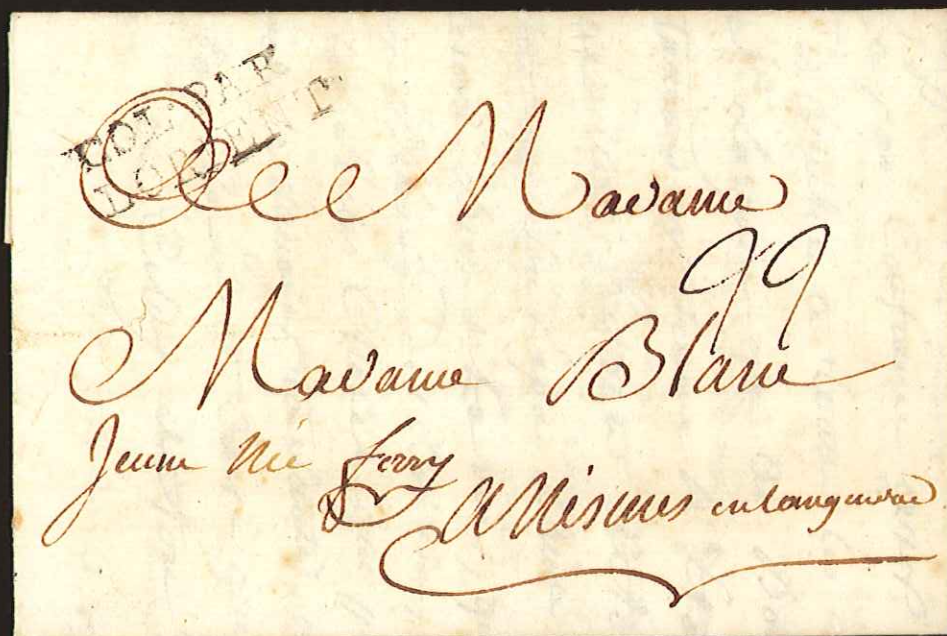 COL. PAR
LORIENT
Madame
22
Madame Blanc
Jeune Née ferry
a Nismes en languedoc